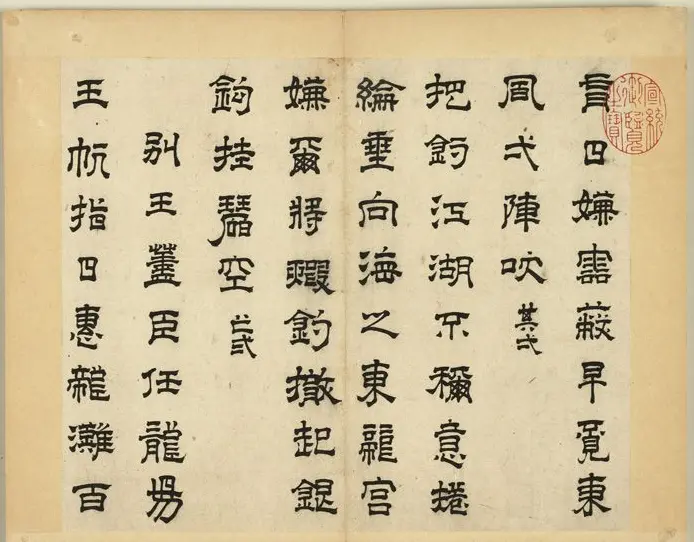 日嫌雲蔽早覓東
風弌陣吹 其弌
把釣江湖不稱意捲
綸垂向海之東龍宮
嫌爾將蝦釣撤起銀
鉤挂碧空 其弍
別王藎臣任龍
王帆指日惠龍灘百
宣統御覽之寶